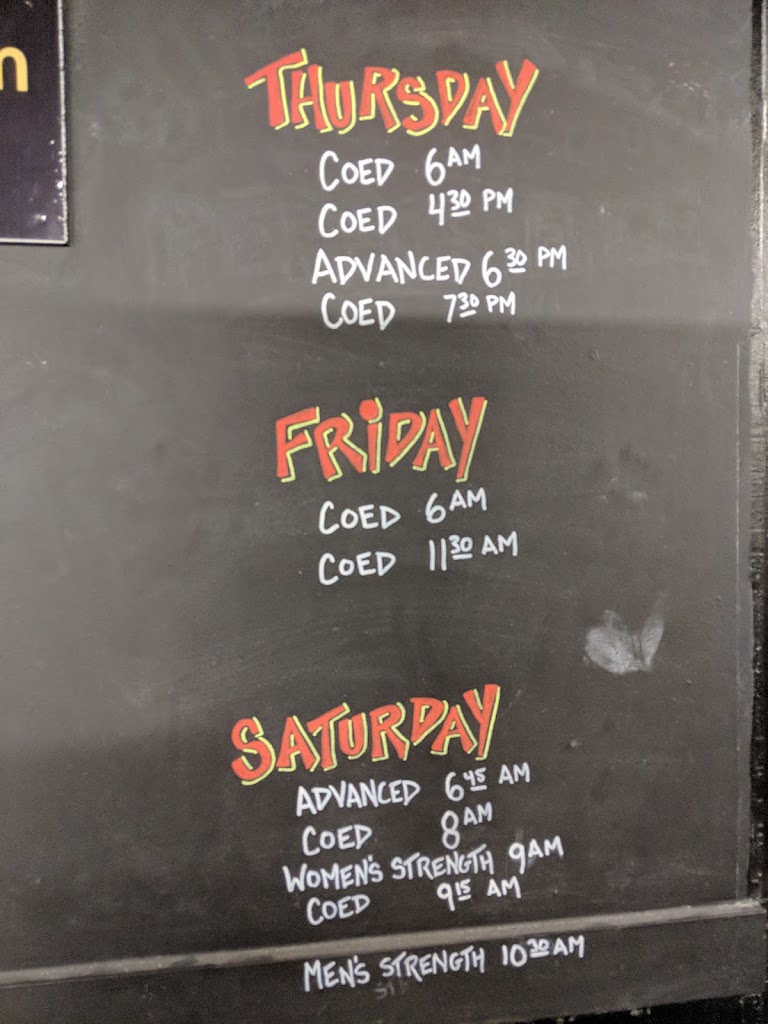 n
THURSDAY
COED 6 AM
COED 4 30 PM
ADVANCED 6 30 PM
COED 7 30 PM
FRiDAY
COED 6 AM
COED 11 30 AM
SATURDAY
ADVANCED 6 45 AM
COED 8 AM
WOMEN'S STRENGTH 9 AM
COED 9 15 AM
MEN'S STRENGTH 10 30 AM